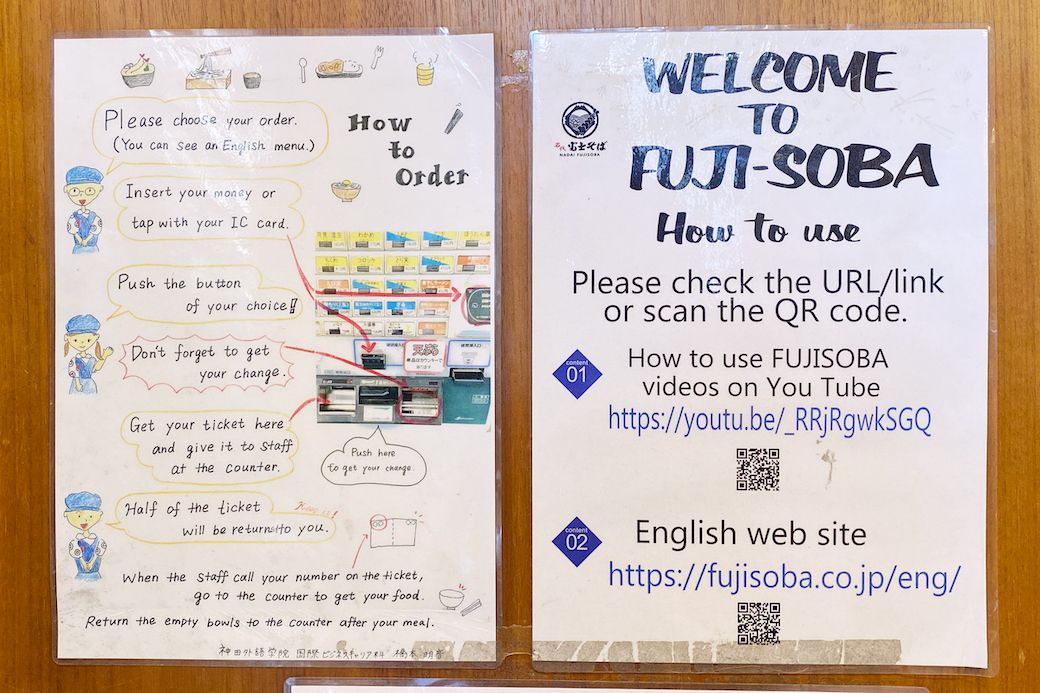 How
to
Order
Please choose your order.
(You can see an English menu.)
Insert your money or
tap with your IC card.
Push the button
of your choice!
Don't forget to get
your change.
Get your ticket here
and give it to staff
at the counter.
Push here
to get your change.
Half of the ticket
will be return to you.
When the staff call your number on the ticket,
go to the counter to get your food.
Return the empty bowls to the counter after your meal.
神田外語学院 国際ビジネスキャリア科
わかめ
コロッケ
天ぷら
WELCOME
TO
FUJI-SOBA
名代 富士そば
NADAI FUJISOBA
How to use
Please check the URL/link
or scan the QR code.
content
01
How to use FUJISOBA
videos on You Tube
https://youtu.be/_RRjRgwkSGQ
content
02
English web site
https://fujisoba.co.jp/eng/